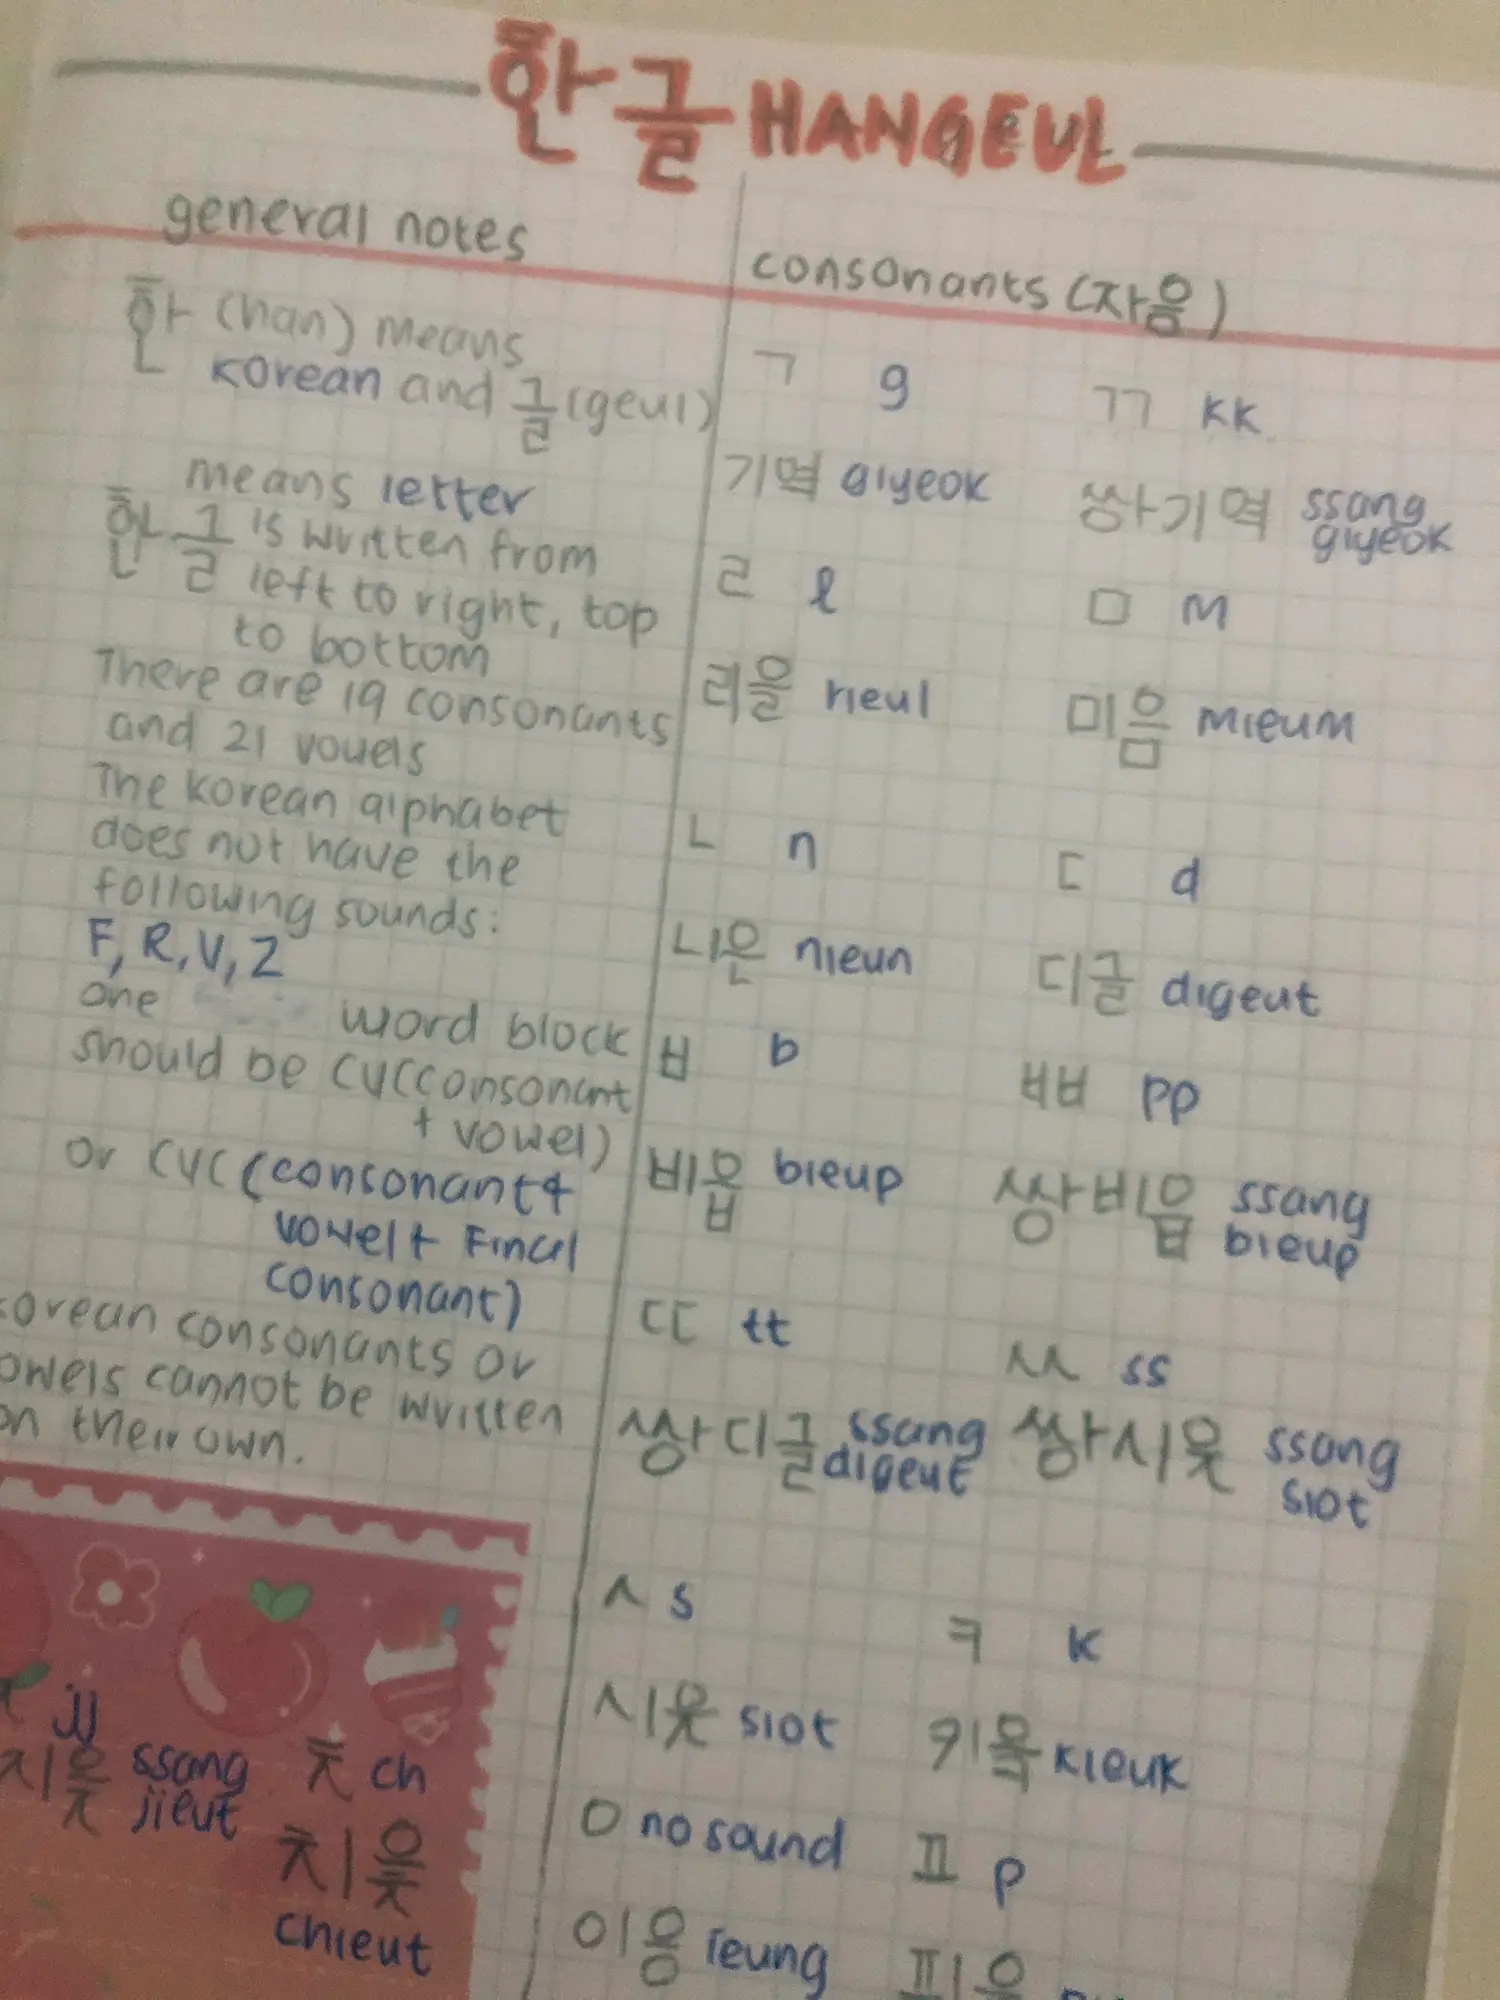 한글 HANGEUL
general notes
한 (han) means
korean and 글 (geul)
means letter
한글 is written from
left to right, top
to bottom
There are 19 consonants
and 21 vowels
The korean alphabet
does not have the
following sounds:
F, R, V, Z
one word block
should be CV (consonant
+ vowel)
or CVC (consonant +
vowel + Final
consonant)
orean consonants or
owels cannot be written
on their own.
jj
지읒 ssang
jieut
ㅊ ch
치읓
chieut
consonants (자음)
ㄱ g ㄲ kk
기역 giyeok 쌍기역 ssang
giyeok
ㄹ l ㅁ m
리을 rieul 미음 mieum
ㄴ n ㄷ d
니은 nieun 디귿 digeut
ㅂ b ㅃ pp
비읍 bieup 쌍비읍 ssang
bieup
ㄸ tt ㅆ ss
쌍디귿 ssang
digeut
쌍시옷 ssang
siot
ㅅ s ㅋ k
시옷 siot 키읔 kieuk
ㅇ no sound ㅍ p
이응 ieung